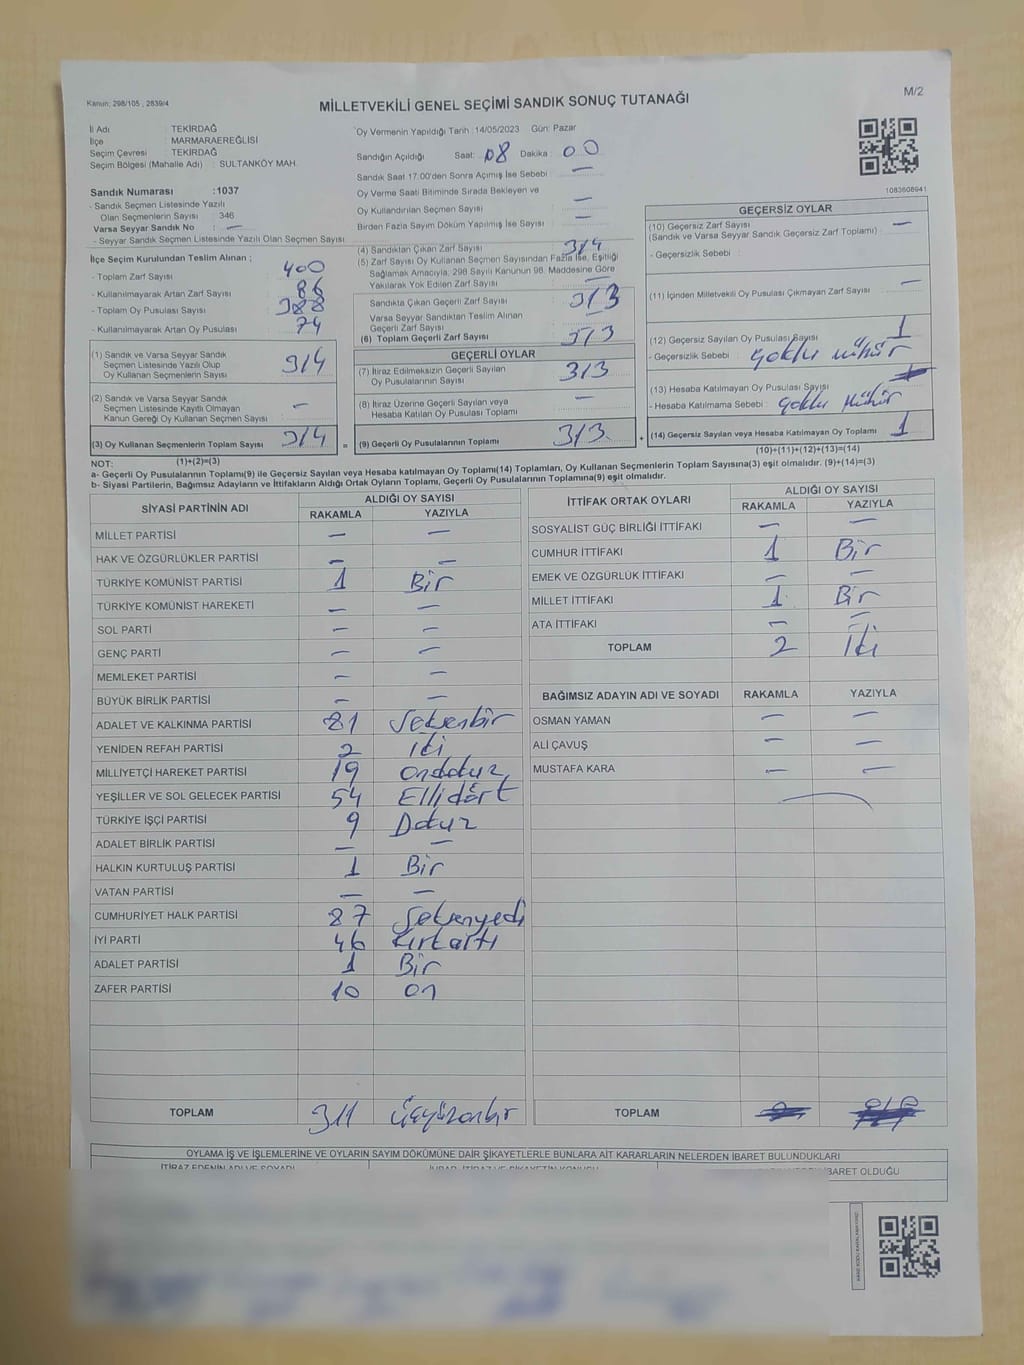 Kanun: 298/105 , 2839/4
MİLLETVEKİLİ GENEL SEÇİMİ SANDIK SONUÇ TUTANAĞI
M/2
İl Adı TEKİRDAĞ
İlçe MARMARAEREĞLİSİ
Seçim Çevresi TEKİRDAĞ
Seçim Bölgesi (Mahalle Adı) : SULTANKÖY MAH.
Sandık Numarası :1037
- Sandık Seçmen Listesinde Yazılı
Olan Seçmenlerin Sayısı : 346
Varsa Seyyar Sandık No : —
- Seyyar Sandık Seçmen Listesinde Yazılı Olan Seçmen Sayısı
İlçe Seçim Kurulundan Teslim Alınan ;
- Toplam Zarf Sayısı 400
- Kullanılmayarak Artan Zarf Sayısı : 86
- Toplam Oy Pusulası Sayısı : 388
- Kullanılmayarak Artan Oy Pusulası : 74
(1) Sandık ve Varsa Seyyar Sandık
Seçmen Listesinde Yazılı Olup
Oy Kullanan Seçmenlerin Sayısı : 314
(2) Sandık ve Varsa Seyyar Sandık
Seçmen Listesinde Kayıtlı Olmayan
Kanun Gereği Oy Kullanan Seçmen Sayısı : —
(3) Oy Kullanan Seçmenlerin Toplam Sayısı : 314
(1)+(2)=(3)
Oy Vermenin Yapıldığı Tarih :14/05/2023 Gün: Pazar
Sandığın Açıldığı Saat: 08 Dakika : 00
Sandık Saat 17:00'den Sonra Açılmış İse Sebebi : —
Oy Verme Saati Bitiminde Sırada Bekleyen ve
Oy Kullandırılan Seçmen Sayısı : —
Birden Fazla Sayım Döküm Yapılmış İse Sayısı : —
(4) Sandıktan Çıkan Zarf Sayısı : 314
(5) Zarf Sayısı Oy Kullanan Seçmen Sayısından Fazla İse, Eşitliği
Sağlamak Amacıyla, 298 Sayılı Kanunun 98. Maddesine Göre
Yakılarak Yok Edilen Zarf Sayısı : —
Sandıkta Çıkan Geçerli Zarf Sayısı : 313
Varsa Seyyar Sandıktan Teslim Alınan
Geçerli Zarf Sayısı : —
(6) Toplam Geçerli Zarf Sayısı : 313
GEÇERLİ OYLAR
(7) İtiraz Edilmeksizin Geçerli Sayılan
Oy Pusulalarının Sayısı : 313
(8) İtiraz Üzerine Geçerli Sayılan veya
Hesaba Katılan Oy Pusulası Toplamı : —
= (9) Geçerli Oy Pusulalarının Toplamı : 313 +
1083608941
GEÇERSİZ OYLAR
(10) Geçersiz Zarf Sayısı
(Sandık ve Varsa Seyyar Sandık Geçersiz Zarf Toplamı) : —
- Geçersizlik Sebebi :
(11) İçinden Milletvekili Oy Pusulası Çıkmayan Zarf Sayısı : —
(12) Geçersiz Sayılan Oy Pusulası Sayısı : 1
- Geçersizlik Sebebi : Çoklu mühür
(13) Hesaba Katılmayan Oy Pusulası Sayısı
- Hesaba Katılmama Sebebi : Çoklu Mühür
(14) Geçersiz Sayılan veya Hesaba Katılmayan Oy Toplamı : 1
(10)+(11)+(12)+(13)=(14)
NOT:
a- Geçerli Oy Pusulalarının Toplamı(9) ile Geçersiz Sayılan veya Hesaba katılmayan Oy Toplamı(14) Toplamları, Oy Kullanan Seçmenlerin Toplam Sayısına(3) eşit olmalıdır. (9)+(14)=(3)
b- Siyasi Partilerin, Bağımsız Adayların ve İttifakların Aldığı Ortak Oyların Toplamı, Geçerli Oy Pusulalarının Toplamına(9) eşit olmalıdır.
SİYASİ PARTİNİN ADI ALDIĞI OY SAYISI
RAKAMLA YAZIYLA
MİLLET PARTİSİ — —
HAK VE ÖZGÜRLÜKLER PARTİSİ — —
TÜRKİYE KOMÜNİST PARTİSİ 1 Bir
TÜRKİYE KOMÜNİST HAREKETİ — —
SOL PARTİ — —
GENÇ PARTİ — —
MEMLEKET PARTİSİ — —
BÜYÜK BİRLİK PARTİSİ — —
ADALET VE KALKINMA PARTİSİ 81 Seksenbir
YENİDEN REFAH PARTİSİ 2 iki
MİLLİYETÇİ HAREKET PARTİSİ 19 ondokuz
YEŞİLLER VE SOL GELECEK PARTİSİ 54 Ellidört
TÜRKİYE İŞÇİ PARTİSİ 9 Dokuz
ADALET BİRLİK PARTİSİ — —
HALKIN KURTULUŞ PARTİSİ 1 Bir
VATAN PARTİSİ — —
CUMHURİYET HALK PARTİSİ 87 Seksenyedi
İYİ PARTİ 46 Kırkaltı
ADALET PARTİSİ 1 Bir
ZAFER PARTİSİ 10 on
TOPLAM 311 üçyüzonbir
İTTİFAK ORTAK OYLARI ALDIĞI OY SAYISI
RAKAMLA YAZIYLA
SOSYALİST GÜÇ BİRLİĞİ İTTİFAKI — —
CUMHUR İTTİFAKI 1 Bir
EMEK VE ÖZGÜRLÜK İTTİFAKI — —
MİLLET İTTİFAKI 1 Bir
ATA İTTİFAKI — —
TOPLAM 2 İki
BAĞIMSIZ ADAYIN ADI VE SOYADI RAKAMLA YAZIYLA
OSMAN YAMAN — —
ALİ ÇAVUŞ — —
MUSTAFA KARA — —
TOPLAM
OYLAMA İŞ VE İŞLEMLERİNE VE OYLARIN SAYIM DÖKÜMÜNE DAİR ŞİKAYETLERLE BUNLARA AİT KARARLARIN NELERDEN İBARET BULUNDUKLARI
İTİRAZ EDENİN ADI VE SOYADI
İBARET OLDUĞU